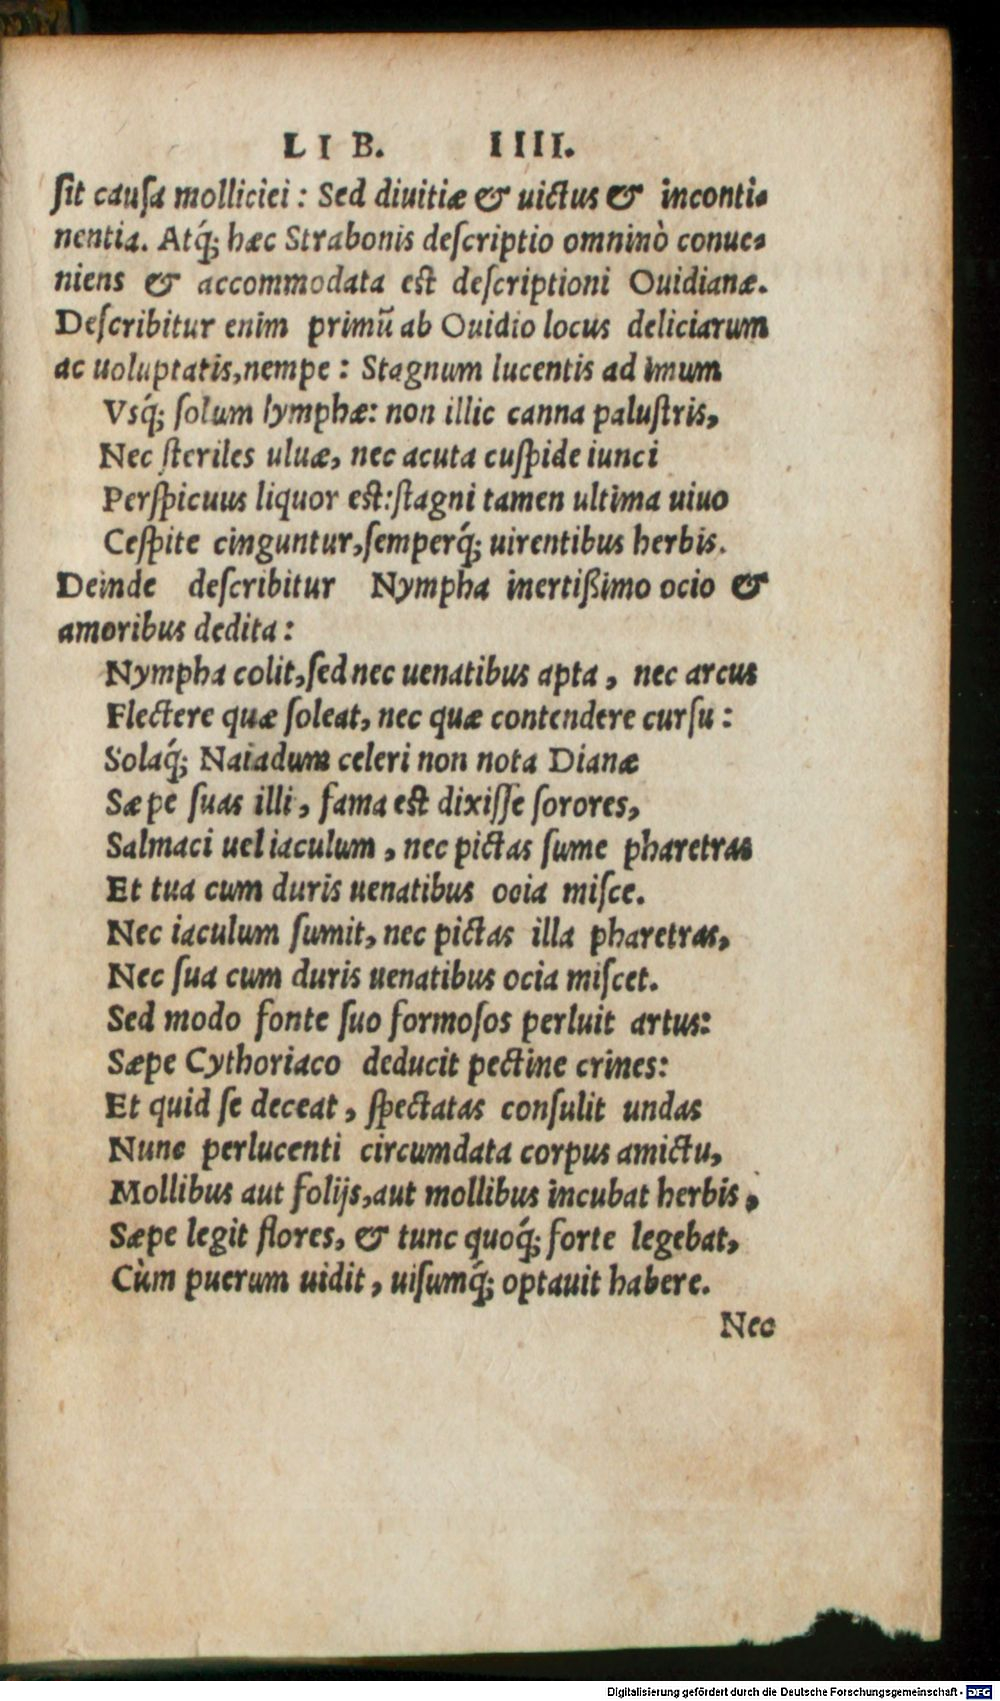 LIB. IIII.
ſit cauſa molliciei : Sed diuitiæ & uictus & inconti-
nentia. Atq́; hæc Strabonis deſcriptio omninò conue-
niens & accommodata est deſcriptioni Ouidianæ.
Deſcribitur enim primũ ab Ouidio locus deliciarum
ac uoluptatis,nempe : Stagnum lucentis ad imum
Vsq́; ſolum lymphæ: non illic canna paluſtris,
Nec ſteriles uluæ, nec acuta cuſpide iunci
Perſpicuus liquor est:ſtagni tamen ultima uiuo
Ceſpite cinguntur,ſemperq́; uirentibus herbis.
Deinde deſcribitur Nympha inertißimo ocio &
amoribus dedita :
Nympha colit,ſed nec uenatibus apta , nec arcus
Flectere quæ ſoleat, nec quæ contendere curſu :
Solaq́; Naiadum celeri non nota Dianæ
Sæpe ſuas illi , fama est dixiſſe ſorores,
Salmaci uel iaculum , nec pictas ſume pharetras
Et tua cum duris uenatibus ocia miſce.
Nec iaculum ſumit, nec pictas illa pharetras,
Nec ſua cum duris uenatibus ocia miſcet.
Sed modo fonte ſuo formoſos perluit artus:
Sæpe Cythoriaco deducit pectine crines:
Et quid ſe deceat , ſpectatas conſulit undas
Nunc perlucenti circumdata corpus amictu,
Mollibus aut folijs,aut mollibus incubat herbis ,
Sæpe legit flores, & tunc quoq́; forte legebat,
Cùm puerum uidit , uiſumq́; optauit habere.
Nec
Digitalisierung gefördert durch die Deutsche Forschungsgemeinschaft - DFG